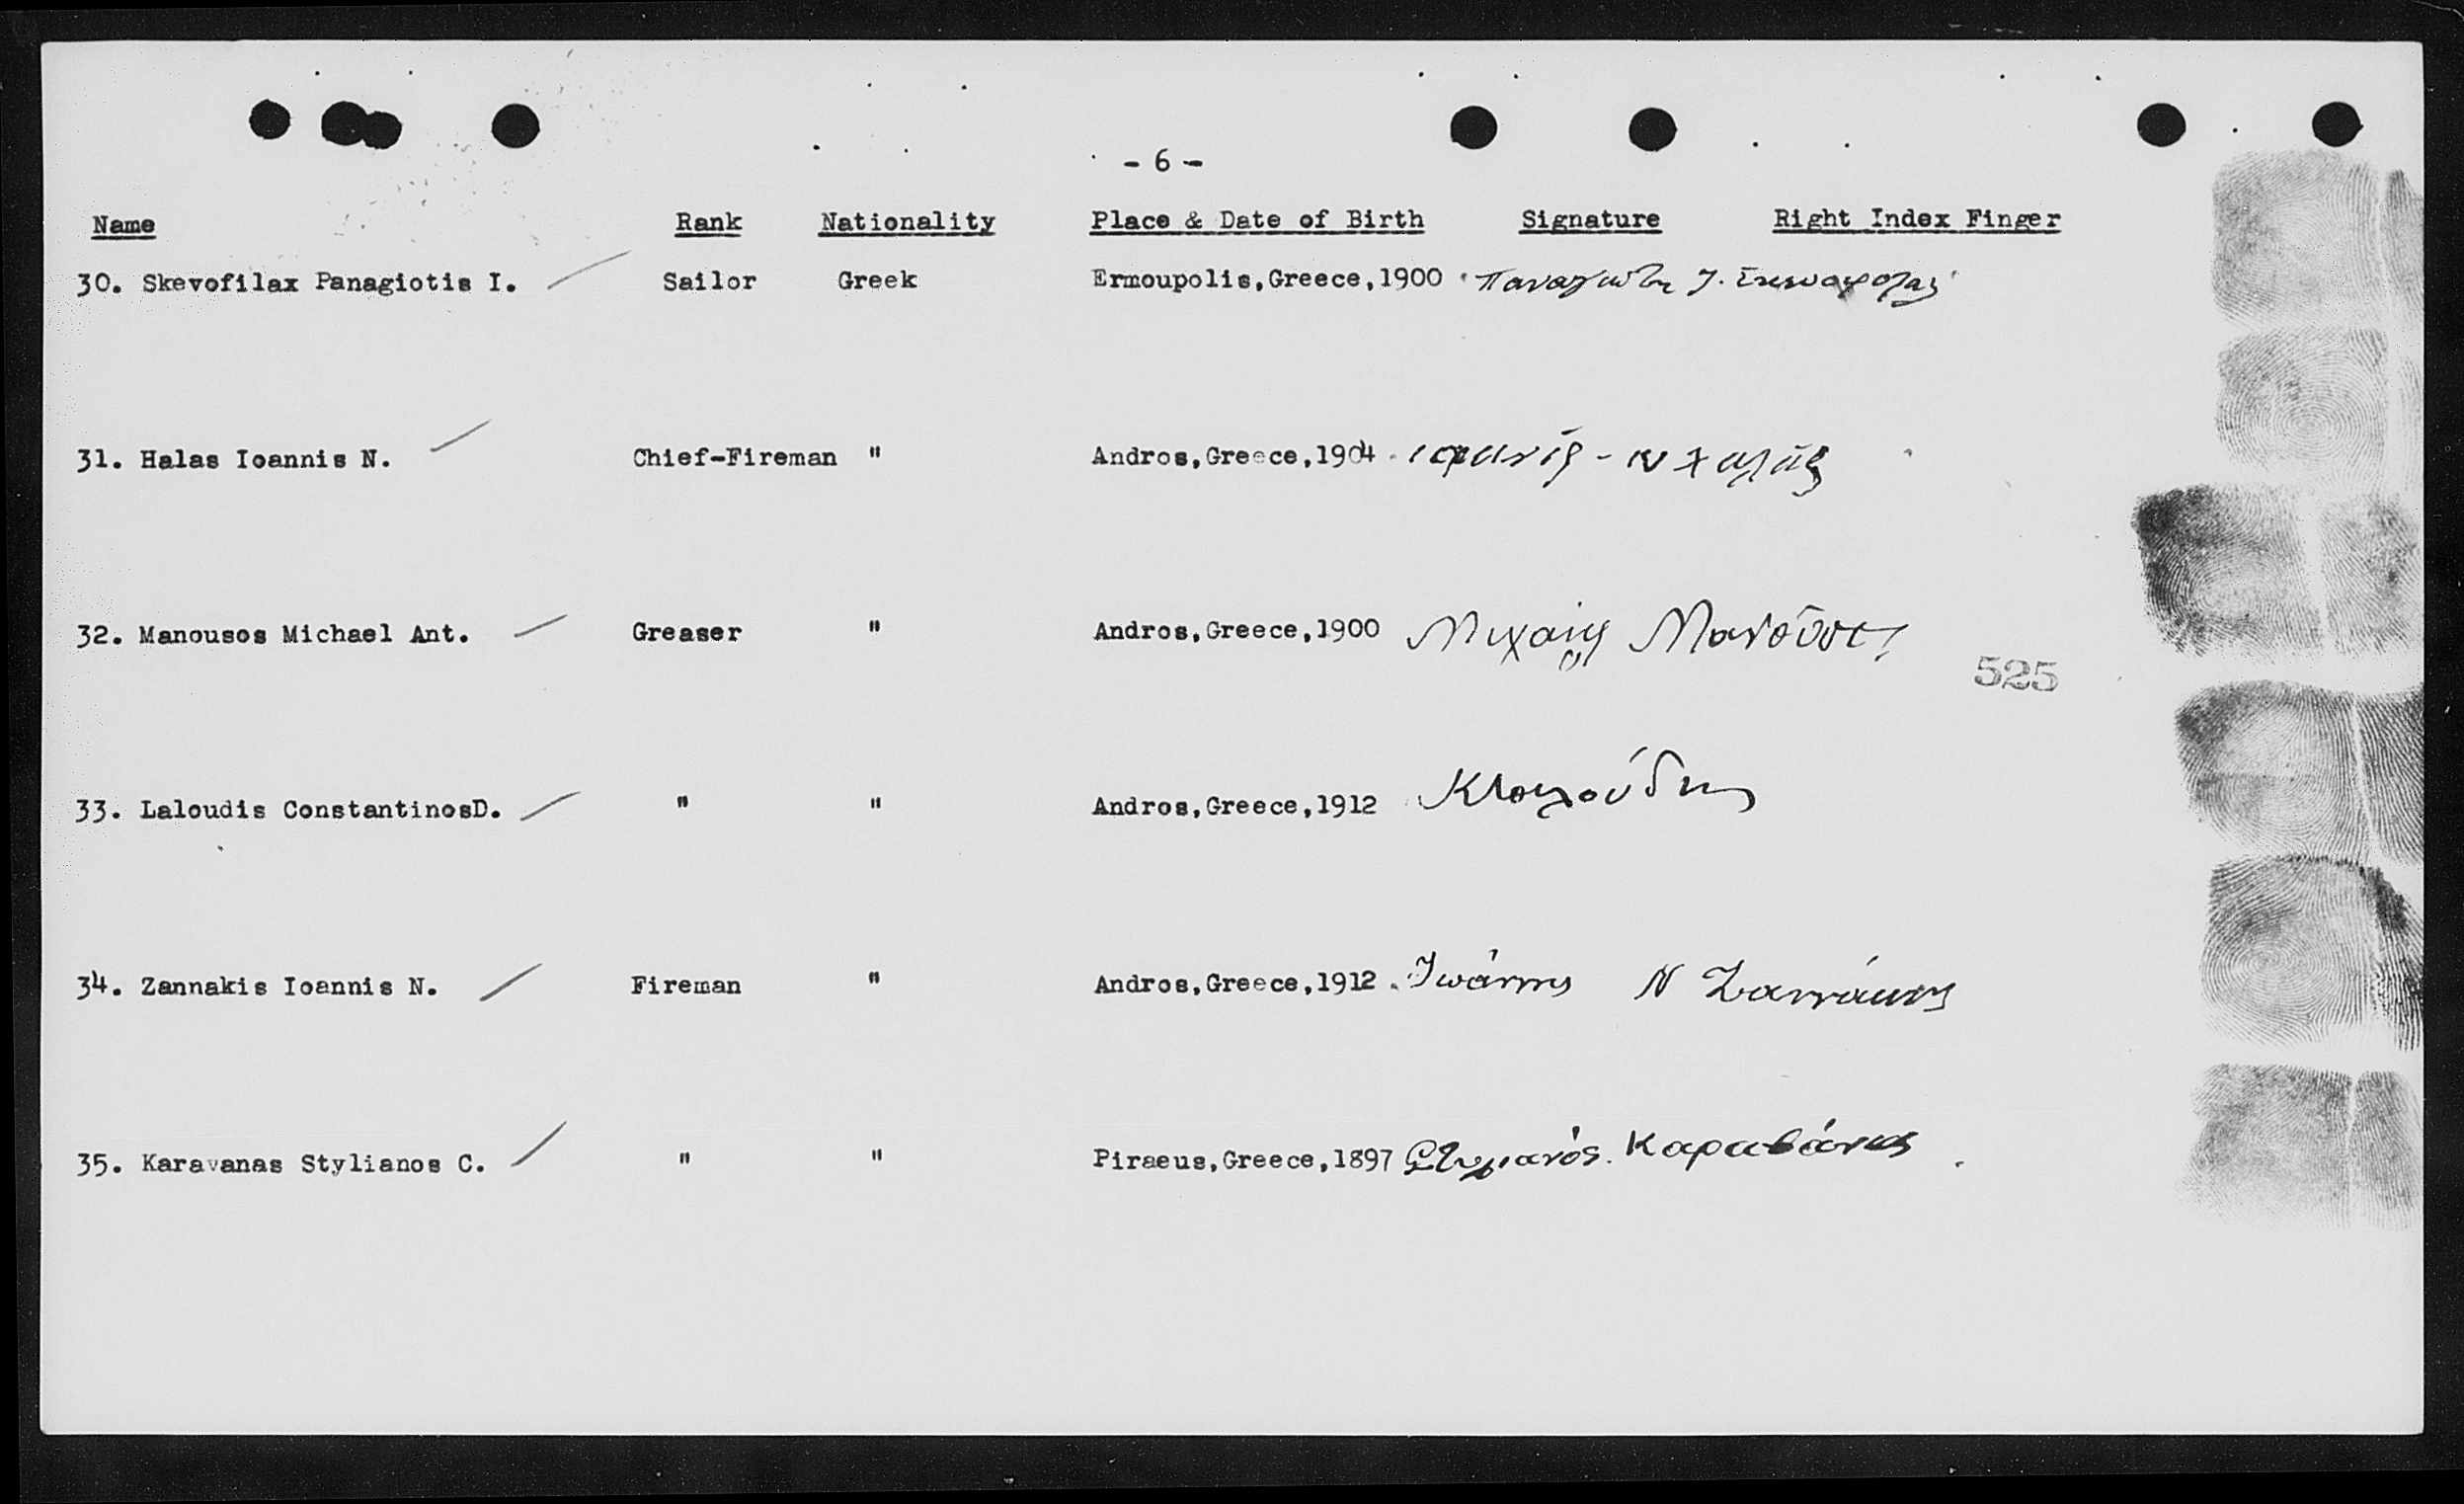 - 6 -
Name Rank Nationality Place & Date of Birth Signature Right Index Finger
30. Skevofilax Panagiotis I. Sailor Greek Ermoupolis,Greece,1900 Παναγιώτης Ι. Σκευοφύλαξ
31. Halas Ioannis N. Chief-Fireman " Andros,Greece,1904 Ν Χαλάς
32. Manousos Michael Ant. Greaser " Andros,Greece,1900 Μιχαήλ Μανοῦσος
525
33. Laloudis ConstantinosD. " " Andros,Greece,1912 ΚΛαλούδης
34. Zannakis Ioannis N. Fireman " Andros,Greece,1912 Ἰωάννης Ν Ζαννάκης
35. Karavanas Stylianos C. " " Piraeus,Greece,1897 Στυλιανός. Καραβάνας